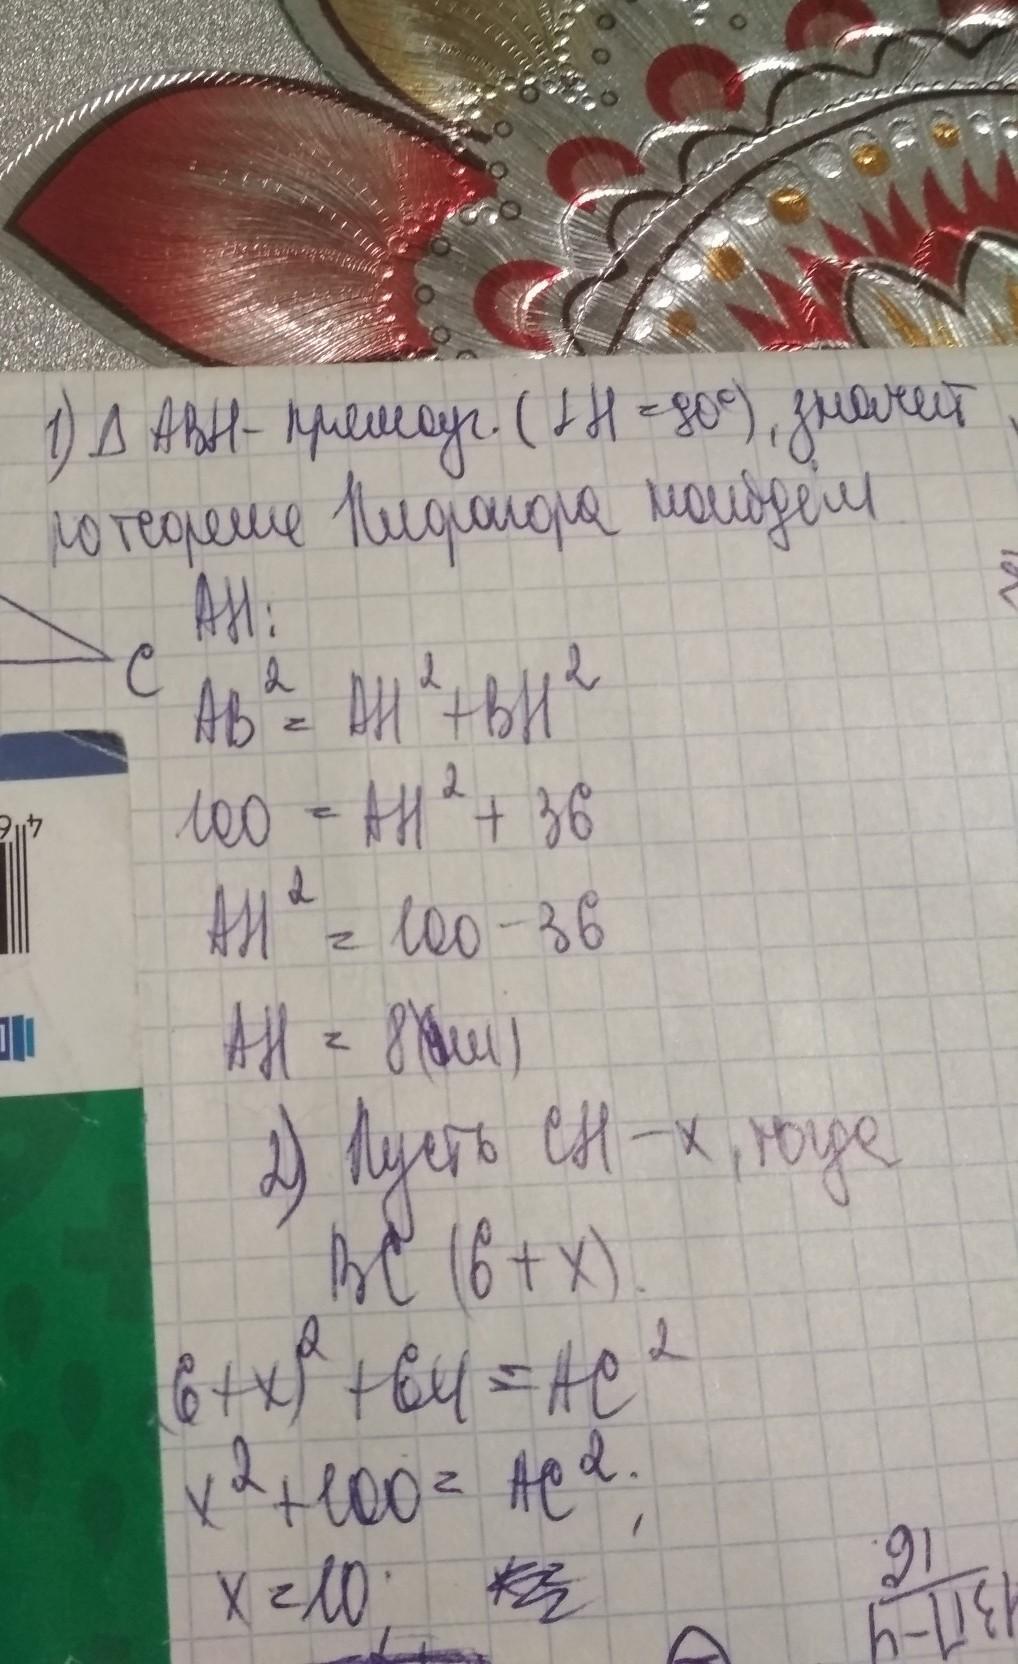 1) Δ ABH - прямоуг. (∠H = 90°), значит
по теореме Пифагора найдём
AH:
C
AB² = AH² + BH²
100 = AH² + 36
AH² = 100 - 36
AH = 8(см)
2) Пусть CH - x, тогда
BC (6 + x).
(6 + x)² + 64 = AC²
x² + 100 = AC²;
x = 10